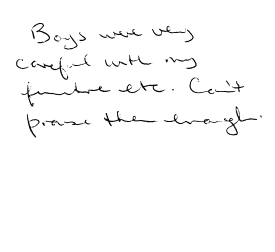 Boys were very
careful with my
furniture etc. Can't
praise them enough.